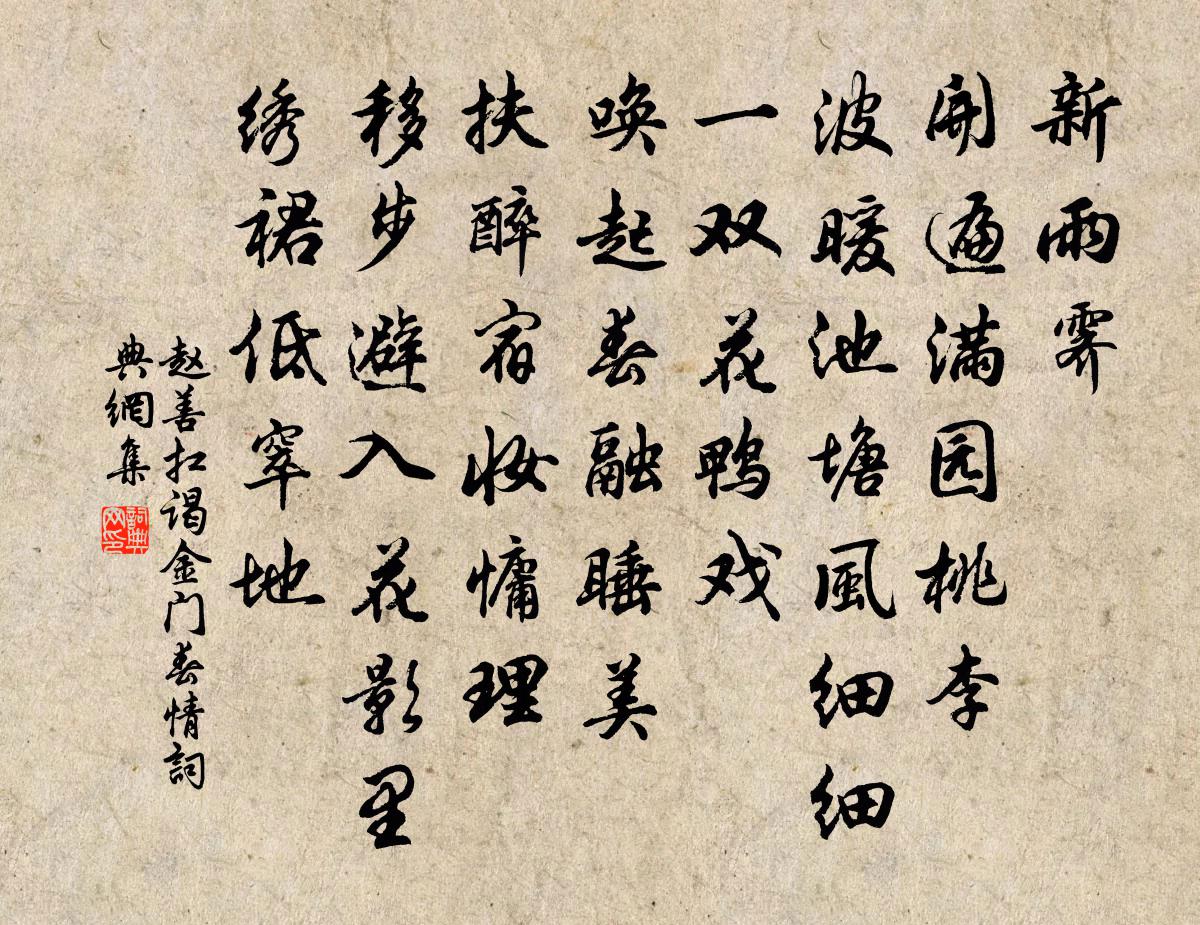 新雨霁
開遍满园桃李
波暖池塘風细细
一双花鸭戏
唤起春融睡美
扶醉宿妆慵理
移步避入花影里
绣裙低窣地
赵善扛谒金门春情詞
典網集
詞典网印